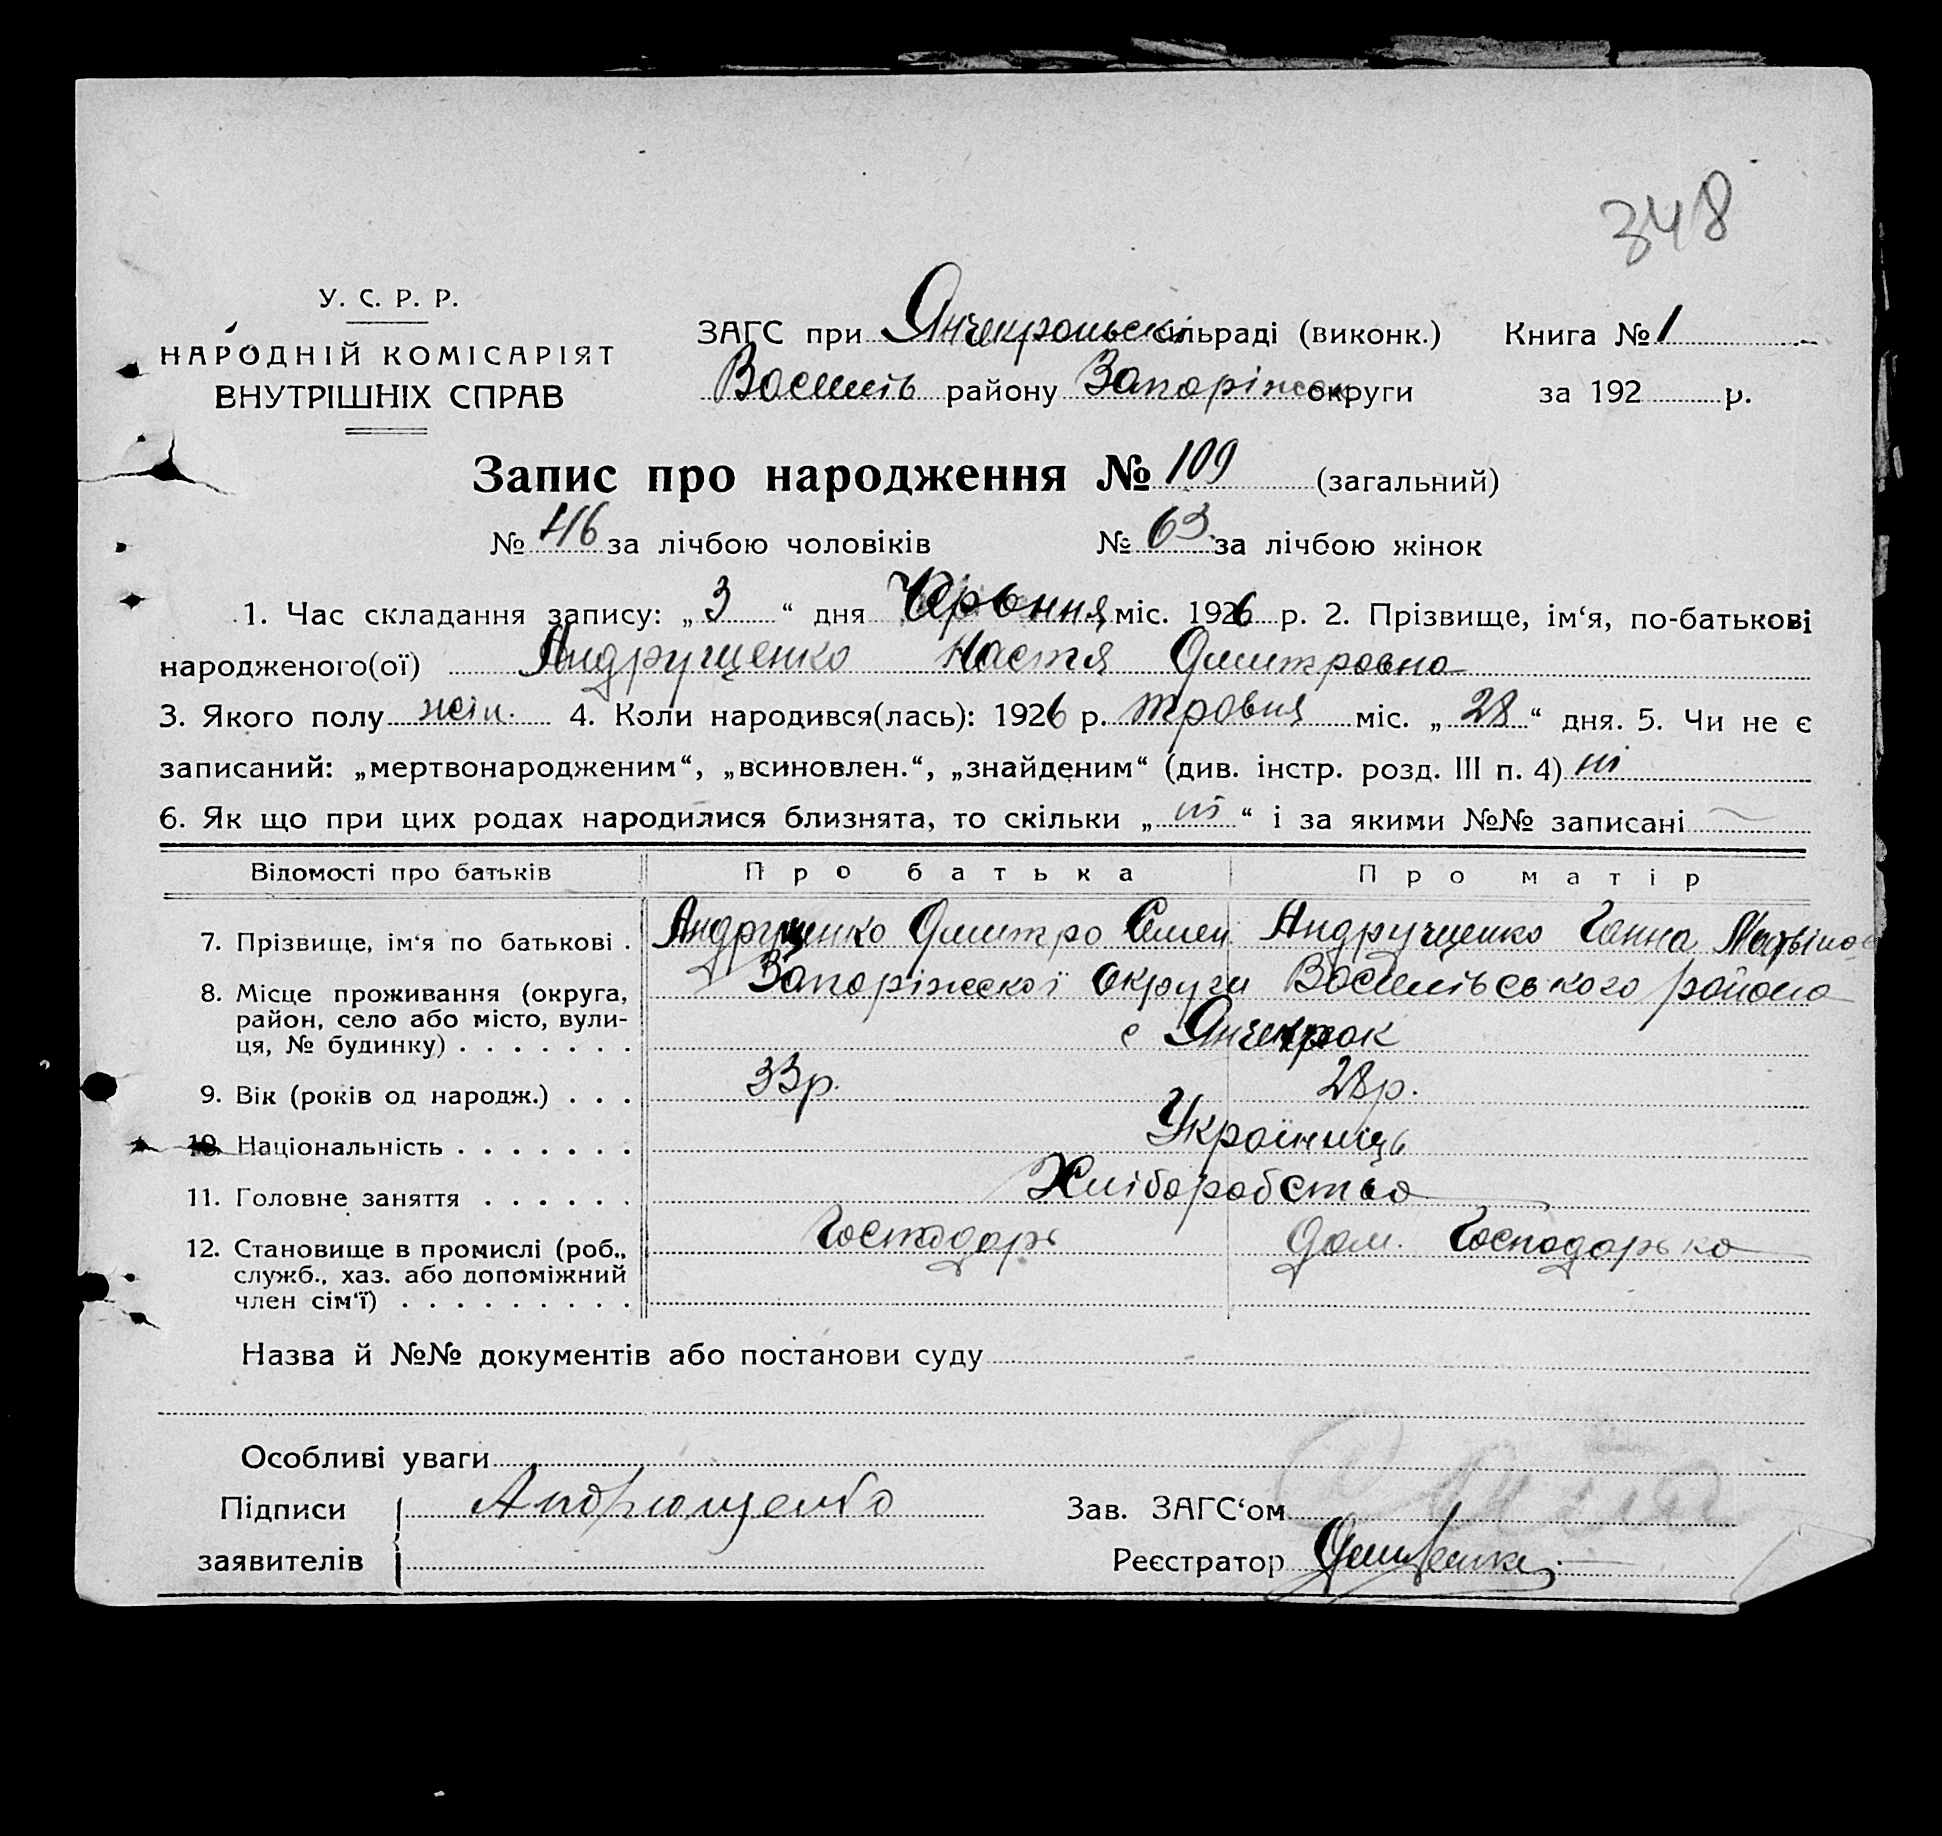 348
У. С. Р. Р.
НАРОДНІЙ КОМІСАРІЯТ
ВНУТРІШНІХ СПРАВ
ЗАГС при Янчекрпольск сільраді (виконк.) Книга № 1
Василів району Запоріжск округи за 192 р.
Запис про народження № 109 (загальний)
№ 46 за лічбою чоловіків № 63 за лічбою жінок
1. Час складання запису: „ 3 “ дня Червння міс. 1926 р. 2. Прізвище, ім‘я, по-батькові
народженого(ої) Андрущенко Настя Дмитровна
3. Якого полу жін. 4. Коли народився(лась): 1926 р. травня міс. „ 28 “ дня. 5. Чи не є
записаний: „мертвонародженим“, „всиновлен.“, „знайденим“ (див. інстр. розд. III п. 4) ні
6. Як що при цих родах народилися близнята, то скільки „ ні “ і за якими №№ записані
Відомості про батьків Про батька Про матір
7. Прізвище, ім‘я по батькові . Андрущенко Дмитро Семен Андрущенко Ганна Матвіно
8. Місце проживання (округа, Запоріжскої округи Василівського района
район, село або місто, вули-
ця, № будинку) . . . . . . . с Янчекрак
9. Вік (років од народж.) . . . 33р. 28р.
10. Національність . . . . . . . Українць
11. Головне заняття . . . . . . Хліборобство
12. Становище в промислі (роб., Господарь Дом. Господарько
служб., хаз. або допоміжний
член сім‘ї) . . . . . . . . .
Назва й №№ документів або постанови суду
Особливі уваги
Підписи Андрющенко Зав. ЗАГС‘ом
заявителів Реєстратор